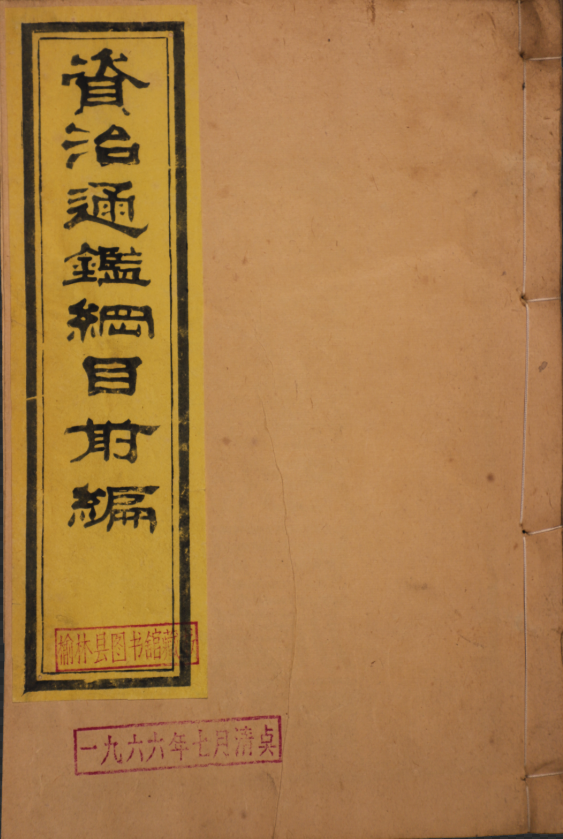 資治通鑑綱目前編
榆林县图书馆藏书
一九六六年七月清点